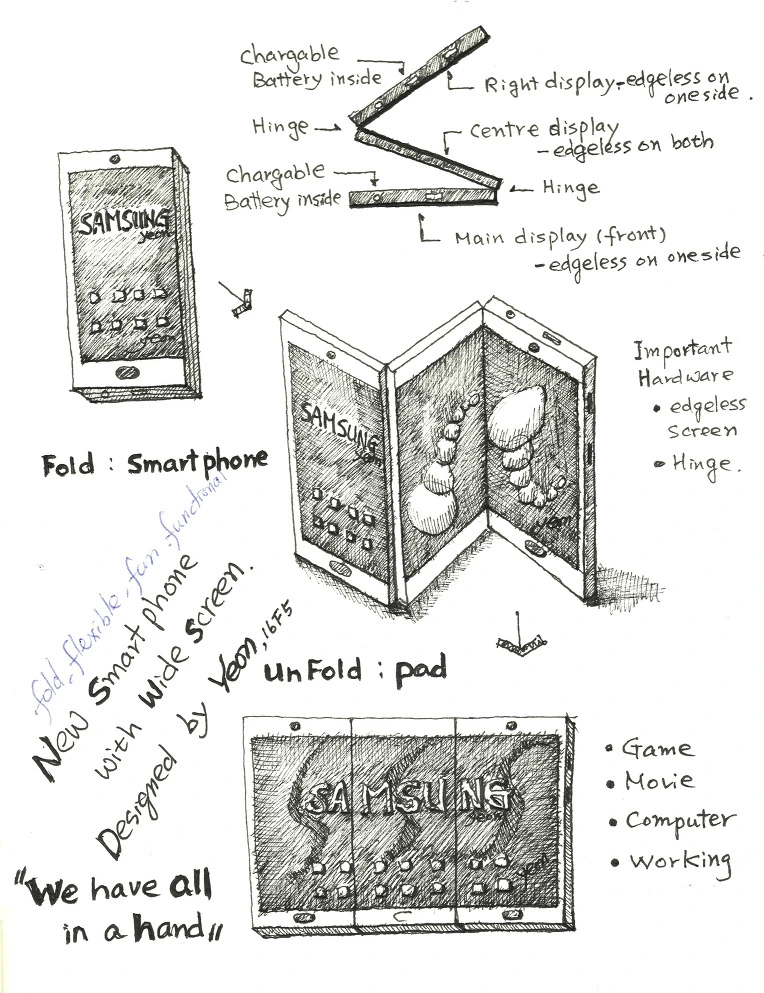 Chargable
Battery inside
Right display-edgeless on
one side.
Hinge
Centre display
- edgeless on both
Chargable
Battery inside
Hinge
Main display (front)
- edgeless on one side
SAMSUNG
yeon
yeon
Fold : Smartphone
SAMSUNG
yeon
yeon
Important
Hardware
• edgeless
screen
• Hinge.
fold, flexible, fun, functional
New Smartphone
with wide screen.
Designed by Yeon, 16F5
UnFold : pad
SAMSUNG
yeon
yeon
• Game
• Movie
• Computer
• working
"We have all
in a hand"